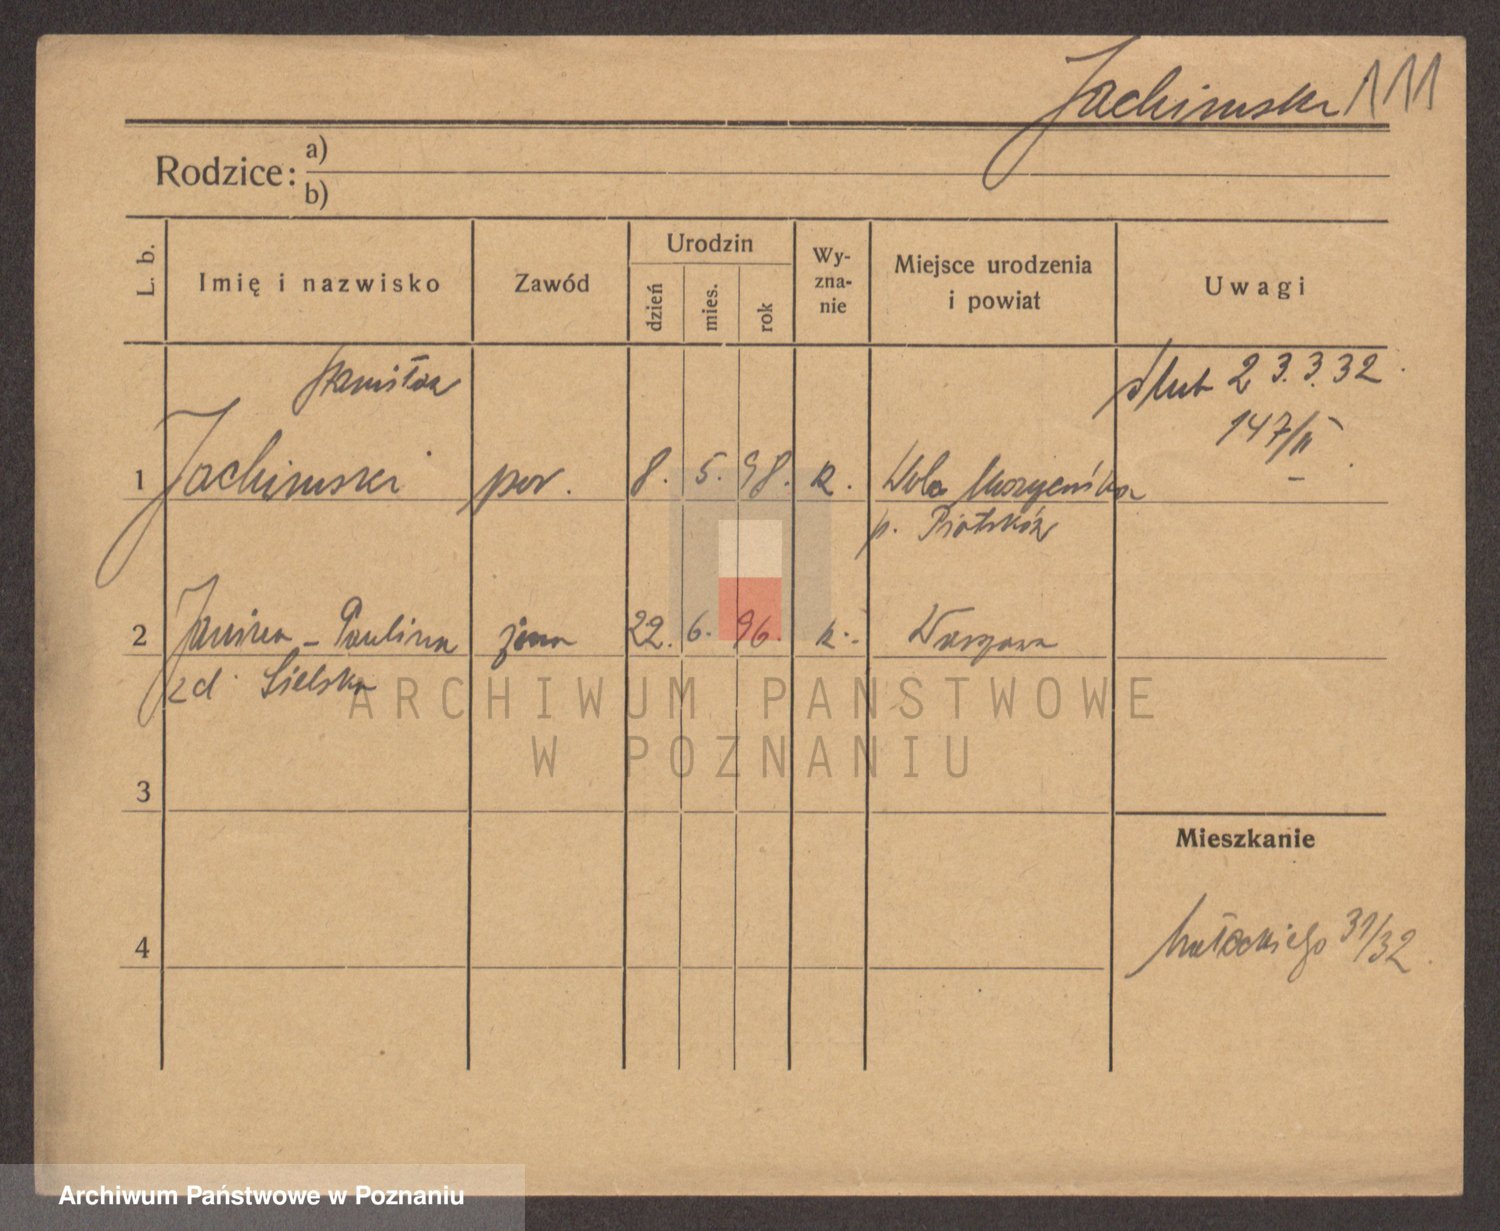 Jachimski 111
Rodzice:
a)
b)
L. b.
Imię i nazwisko
Zawód
Urodzin
dzień
mies.
rok
Wy-
zna-
nie
Miejsce urodzenia
i powiat
Uwagi
Stanisław
ślub 23.3.32.
147/II
1 Jachimski por. 8. 5. 98. k. Wola
p. Piotrków
2 Janina - Paulina żona 22. 6. 96. k. Warszawa
zd. Sielska
ARCHIWUM PAŃSTWOWE
W POZNANIU
3
Mieszkanie
4
31/32.
Archiwum Państwowe w Poznaniu